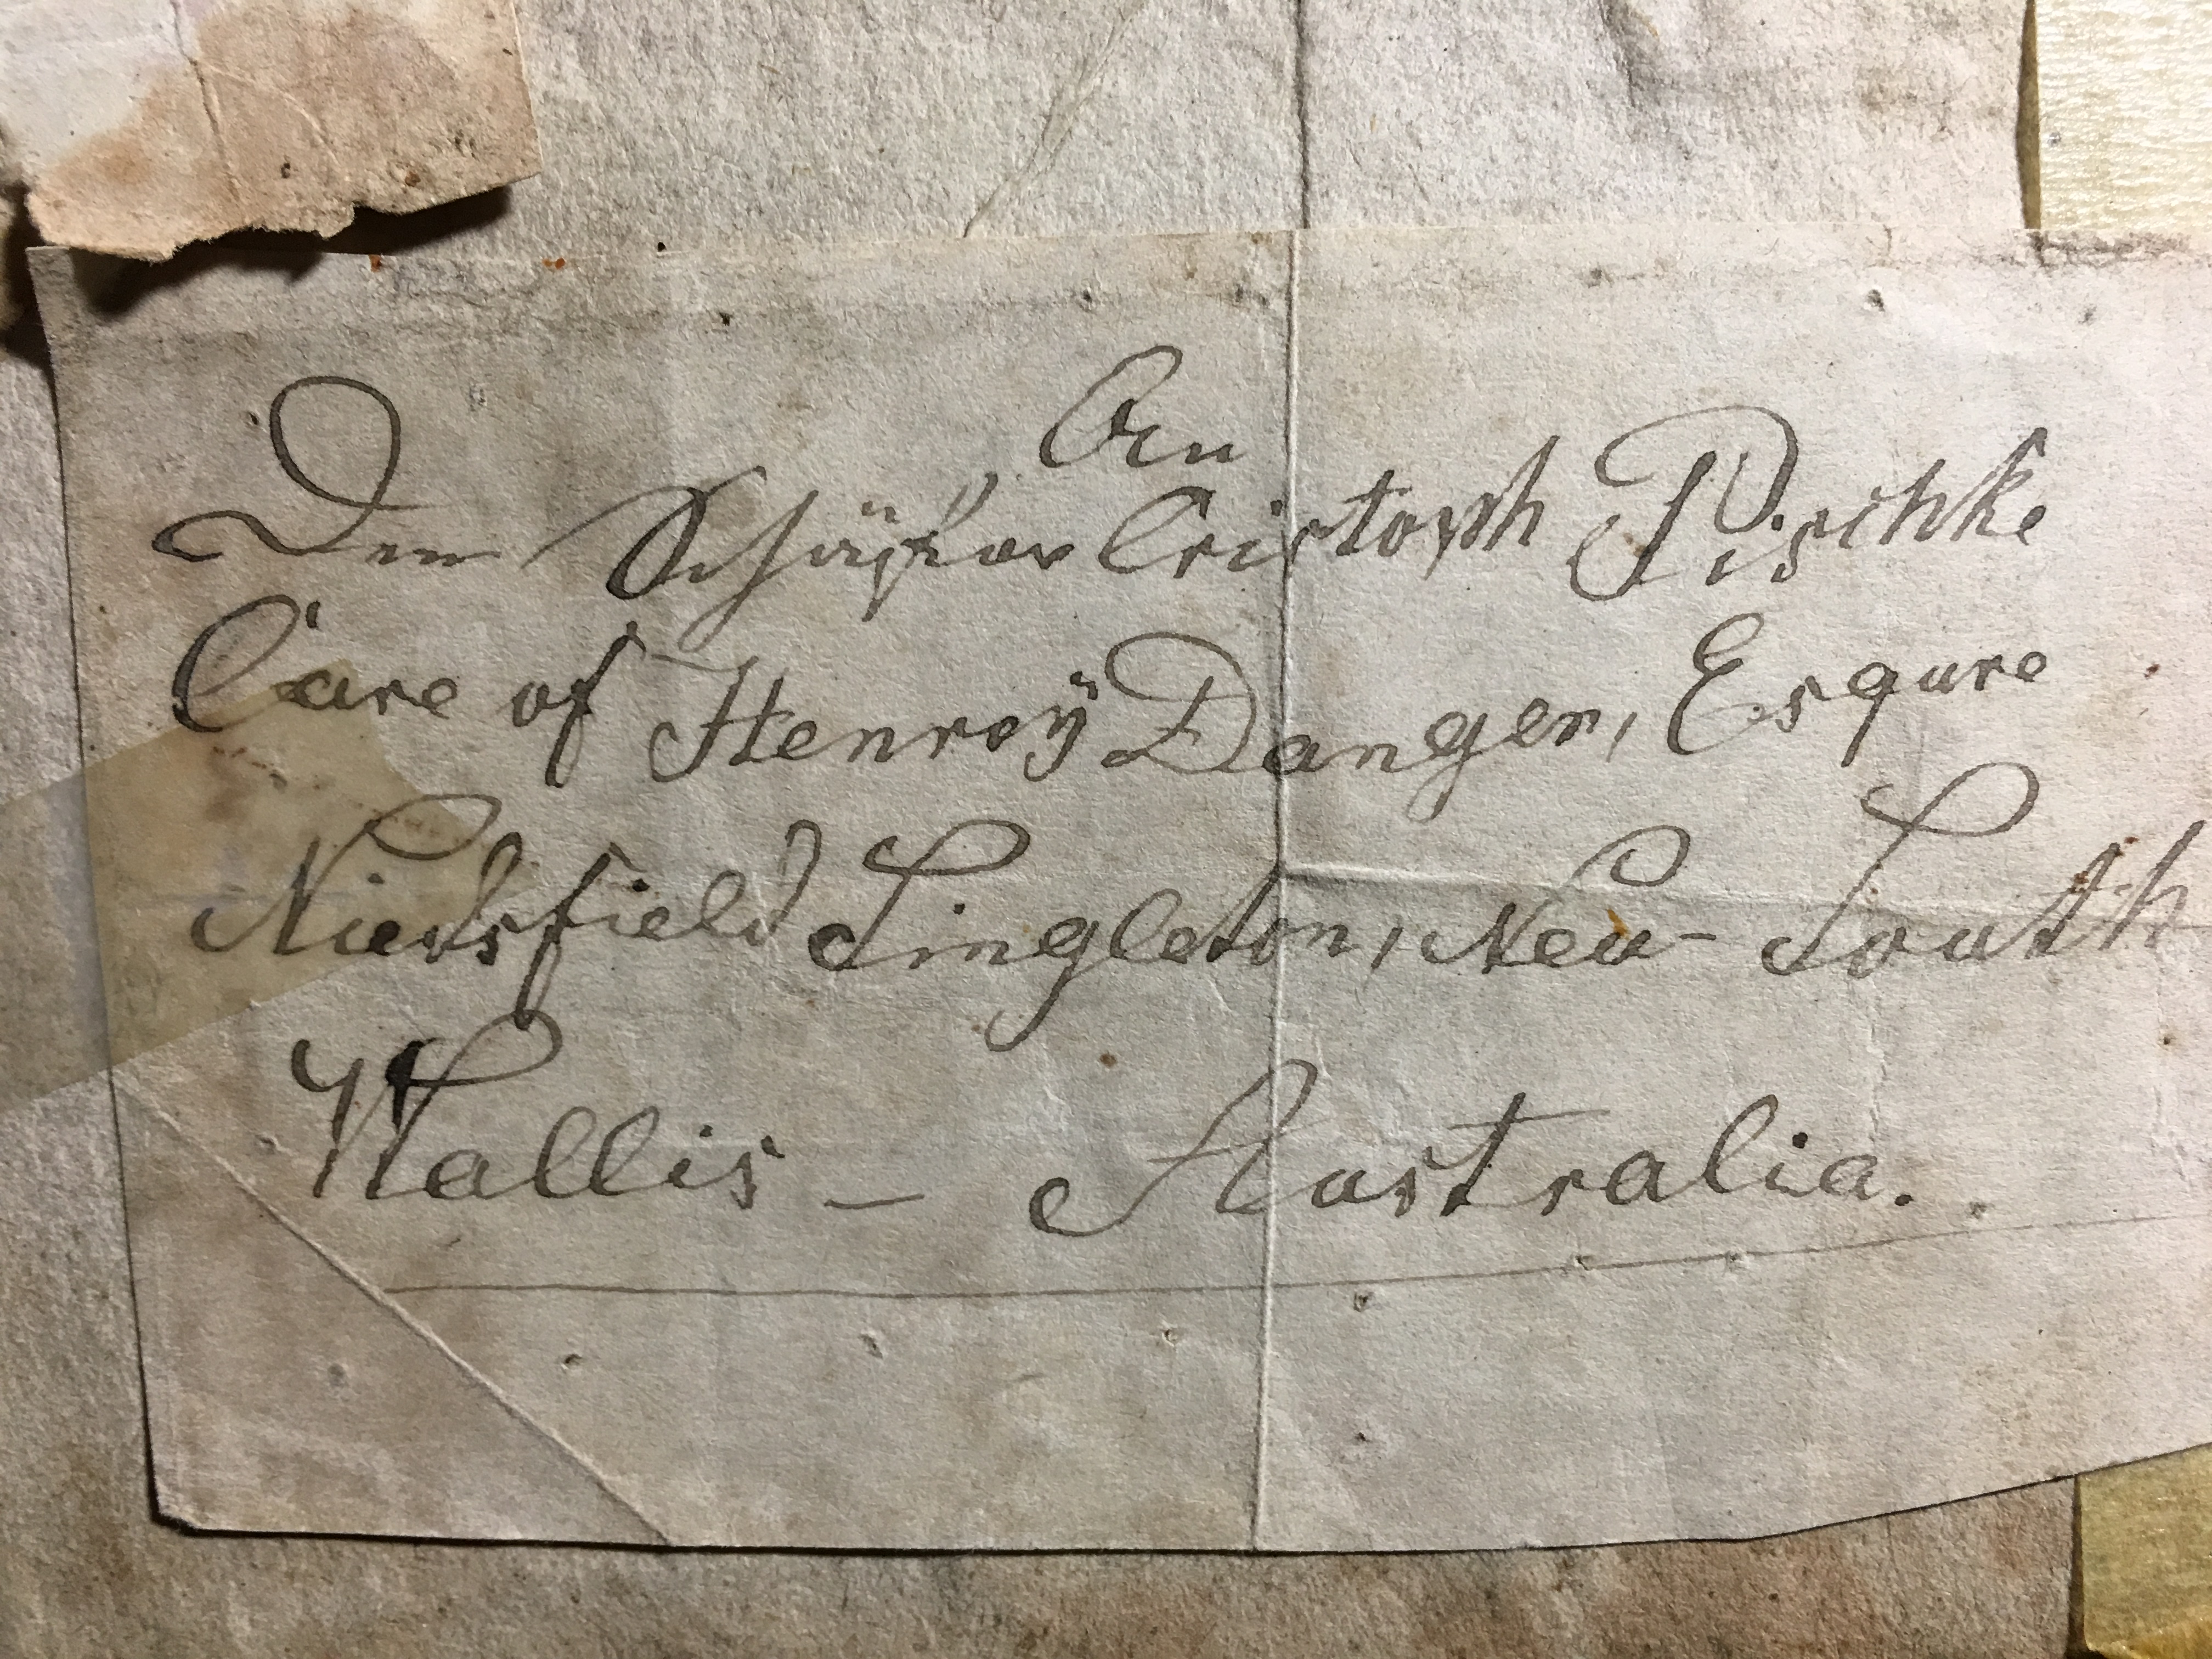 An
Den Schäfer Cristoph Pischke
Care of Henroÿ Danger, Esqure
Niedsfield Singleton, Neu- South
Wallis – Australia.